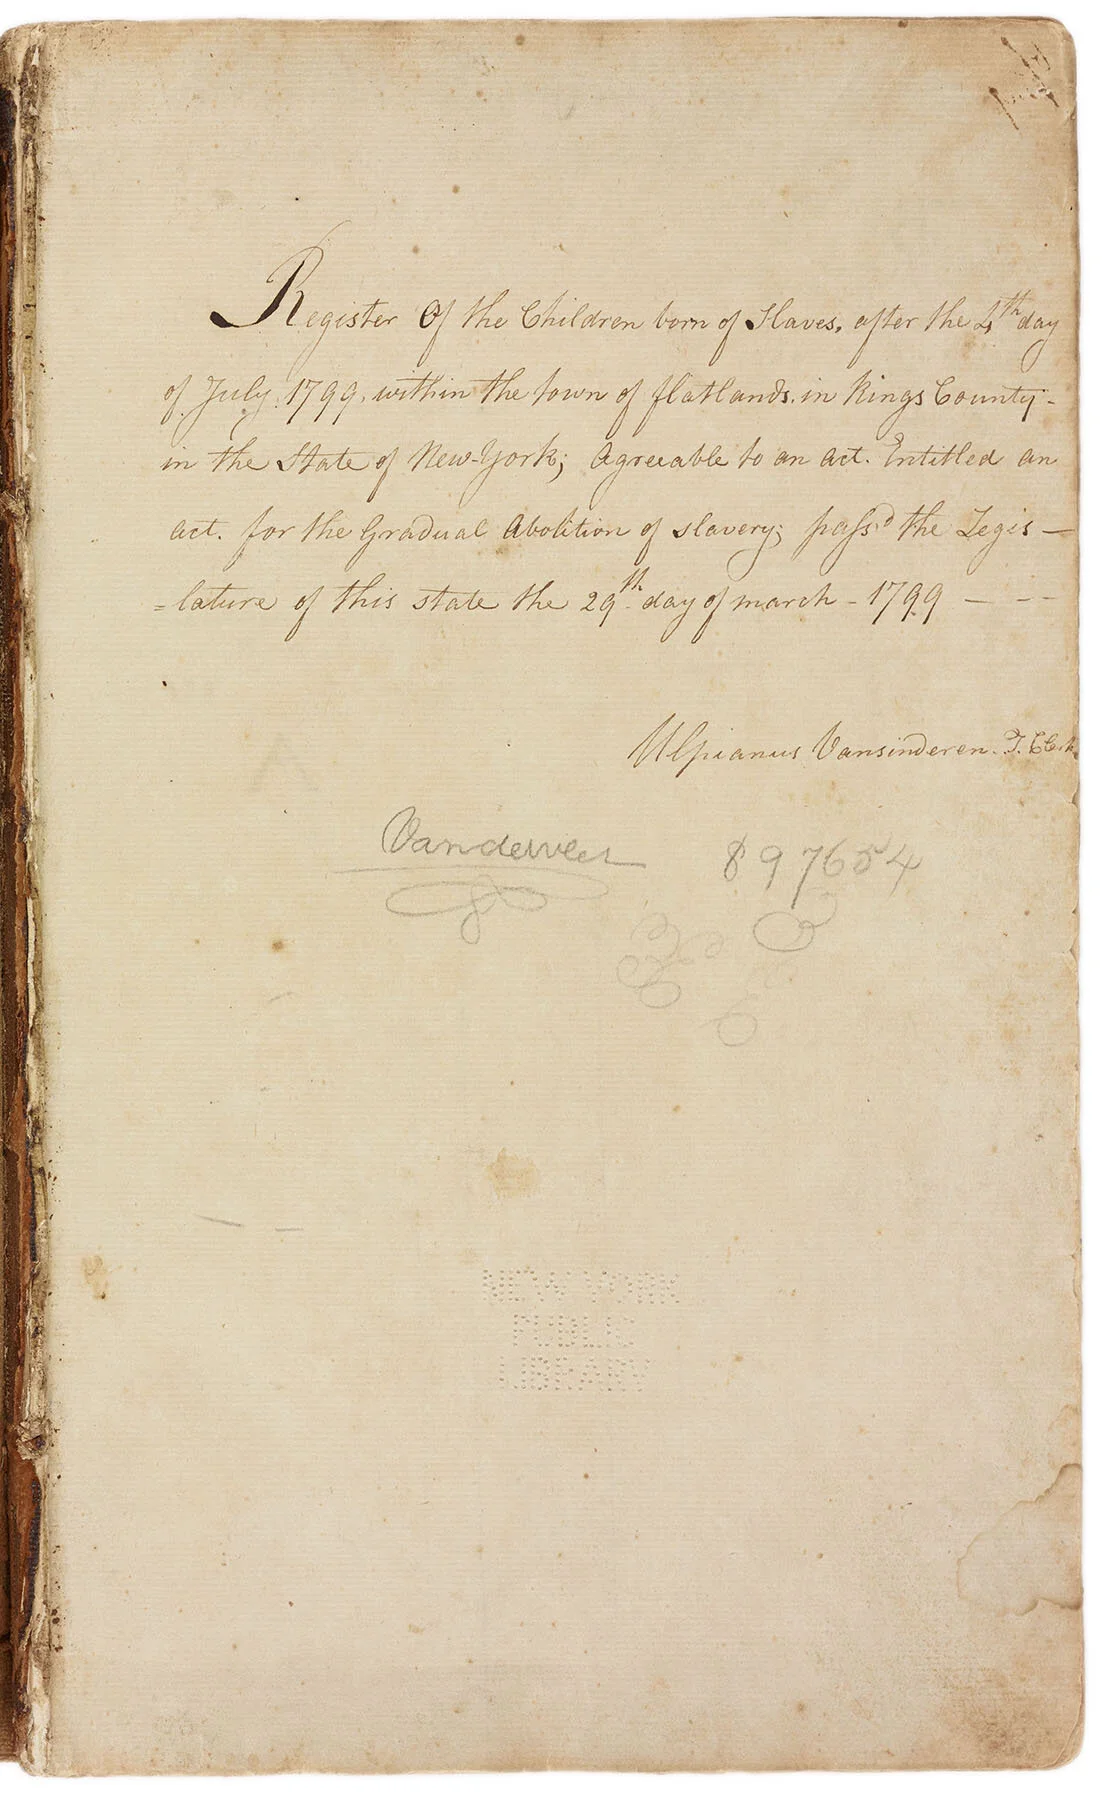 Register Of the Children born of Slaves, after the 4th day
of July 1799, within the town of flatlands, in Kings County -
in the State of New-York; Agreeable to an act. Entitled an
act. for the Gradual Abolition of slavery; passd the Legis -
= lature of this state the 29th day of march - 1799 - - -
Ulpianus Vansinderen. T. Clerk
Vanderveer
897654
NEW YORK
PUBLIC
LIBRARY